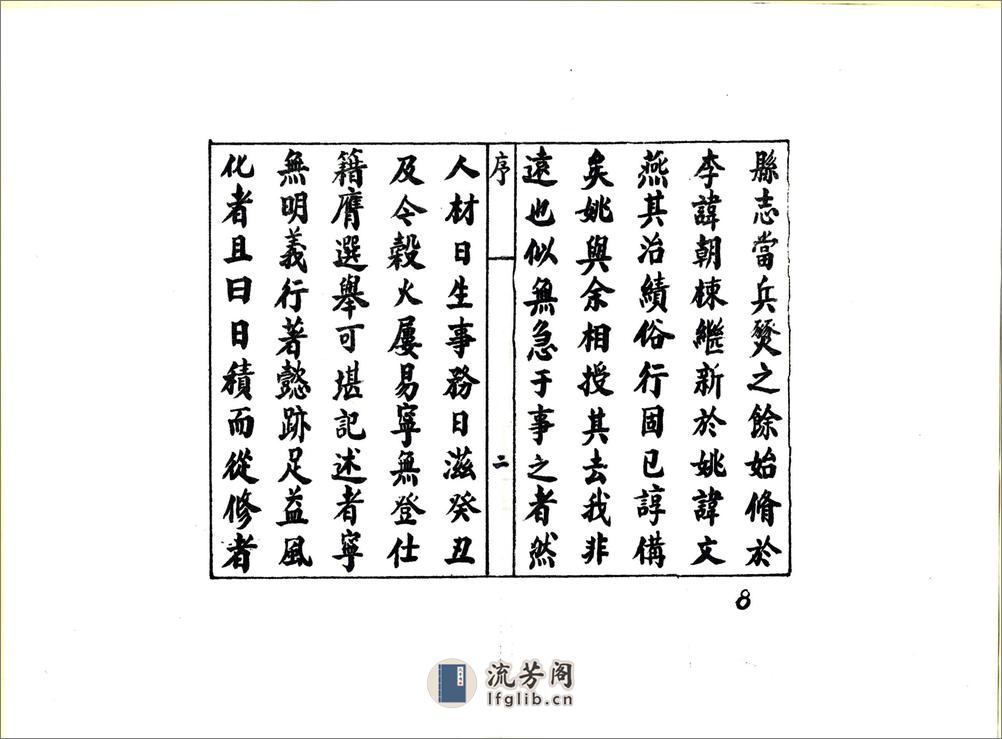 縣志當兵燹之餘始脩於
李諱朝棟繼新於姚諱文
燕其治績俗行固已諄備
矣姚與余相授其去我非
遠也似無急于事之者然
序
二
人材日生事務日滋癸丑
及今榖火屢易寧無登仕
籍膺選舉可堪記述者寧
無明義行著懿跡足益風
化者且曰日積而從修者
8
流芳阁
lfglib.cn